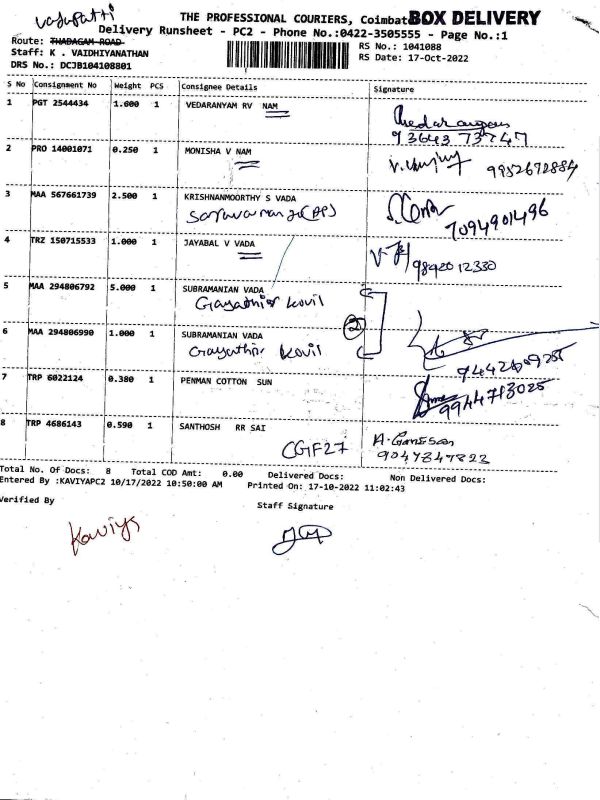 THE PROFESSIONAL COURIERS, Coimbat BOX DELIVERY
Delivery Runsheet - PC2 - Phone No.:0422-3505555 - Page No.:1
Route: THADAGAM ROAD
RS No.: 1041088
Staff: K . VAIDHIYANATHAN
RS Date: 17-Oct-2022
DRS No.: DCJB104108801
S No Consignment No Weight PCS Consignee Details Signature
1 PGT 2544434 1.000 1 VEDARANYAM RV NAM
93643 73747
2 PRO 14001071 0.250 1 MONISHA V NAM
9952672884
3 MAA 567661739 2.500 1 KRISHNANMOORTHY S VADA
7094901496
4 TRZ 150715533 1.000 1 JAYABAL V VADA
9892012330
5 MAA 294806792 5.000 1 SUBRAMANIAN VADA
Gayathri Kovil
2
6 MAA 294806990 1.000 1 SUBRAMANIAN VADA
Gayathri Kovil
7 TRP 6022124 0.380 1 PENMAN COTTON SUN
9944713025
8 TRP 4686143 0.590 1 SANTHOSH RR SAI
CGF27
A. Ganesan
9047847823
Total No. Of Docs: 8 Total COD Amt: 0.00 Delivered Docs: Non Delivered Docs:
Entered By :KAVIYAPC2 10/17/2022 10:50:00 AM Printed On: 17-10-2022 11:02:43
Verified By
Staff Signature
Kaviya